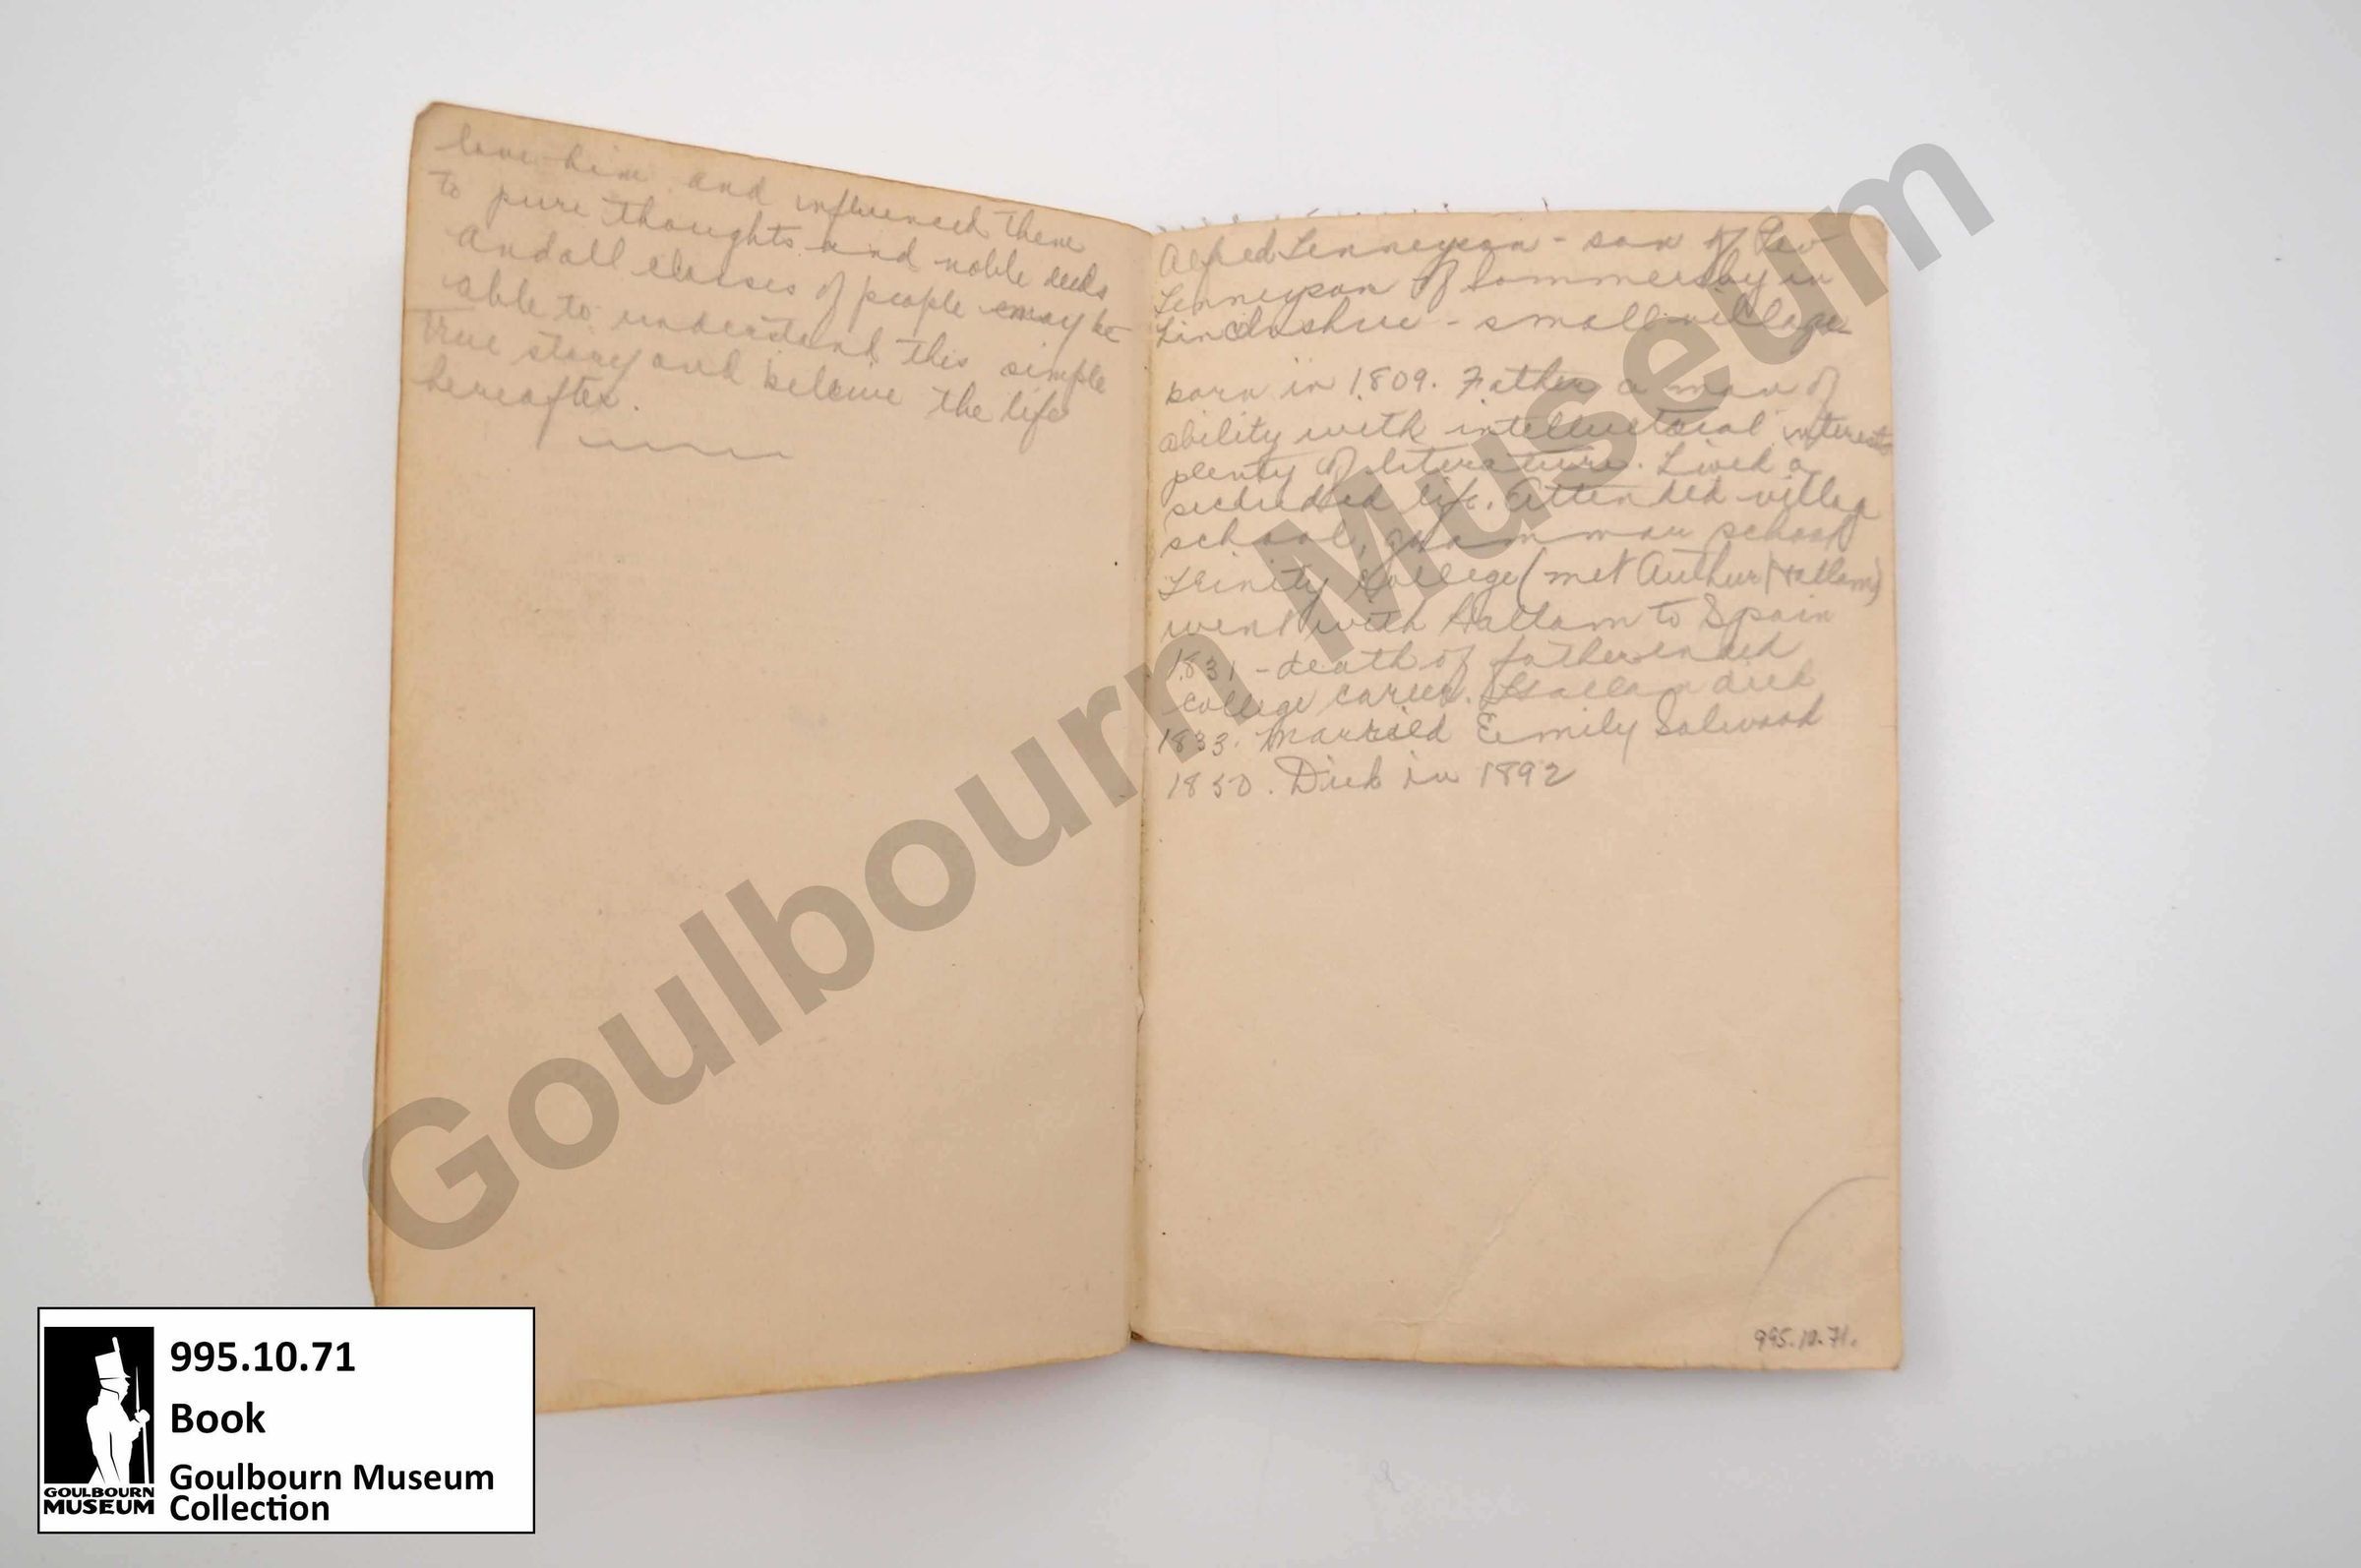 love him and influenced them
to pure thoughts and noble deeds
And all classes of people may be
able to understand this simple
true story and believe the life
hereafter.
Alfred Tenneyson - son of Rev
Tenneyson of Sommersby in
Lincolnshire - small village
born in 1809. Father a man of
ability with intellectual interests
plenty of literature. Lived a
secluded life. Attended village
school, grammar school
Trinity College (met Authur Hallam)
went with Hallam to Spain
1831 - death of father ended
college career. Hallam died
1833. Married Eemily Salwood
1850. Died in 1892
995.10.71.
Goulbourn Museum
995.10.71
Book
Goulbourn Museum
Collection
GOULBOURN
MUSEUM